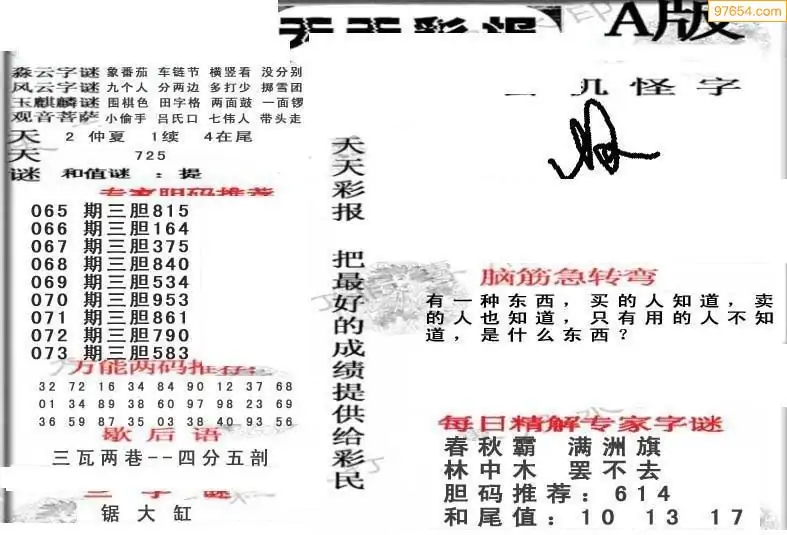 97654.com
天天彩报 A版
森云字谜 象番茄 车链节 横竖看 没分别
风云字谜 九个人 分两边 多打少 掷雪团
玉麒麟谜 围棋色 田字格 两面鼓 一面锣
观音菩萨 小偷手 吕氏口 七伟人 带头走
天 2 仲夏 1续 4在尾
天 725
谜 和值谜 : 提
专家胆码推荐
065 期三胆815
066 期三胆164
067 期三胆375
068 期三胆840
069 期三胆534
070 期三胆953
071 期三胆861
072 期三胆790
073 期三胆583
万能两码推荐:
32 72 16 34 84 90 12 37 68
01 34 89 38 60 97 98 23 69
36 59 87 35 03 38 40 93 56
歇后语
三瓦两巷--四分五剖
三字谜
锯大缸
天天彩报 把最好的成绩提供给彩民
玄机怪字
脑筋急转弯
有一种东西，买的人知道，卖
的人也知道，只有用的人不知
道，是什么东西？
每日精解专家字谜
春秋霸 满洲旗
林中木 罢不去
胆码推荐: 614
和尾值: 10 13 17